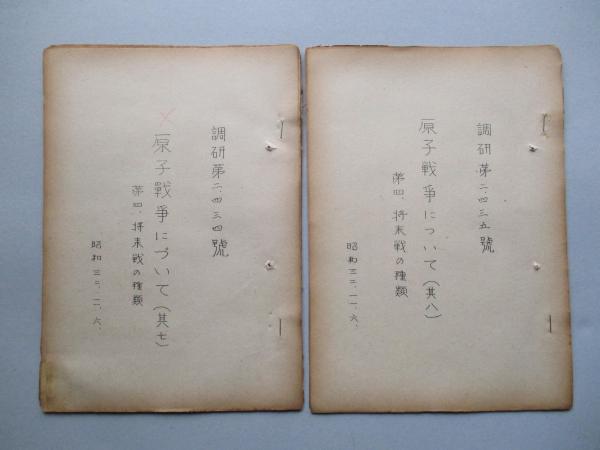 調研第二、四三四號
原子戰爭について(其七)
第四、将来戦の種類
昭和三二、一一、六、
調研第二、四三五號
原子戦爭について(其八)
第四、将来戦の種類
昭和三二、一一、六、